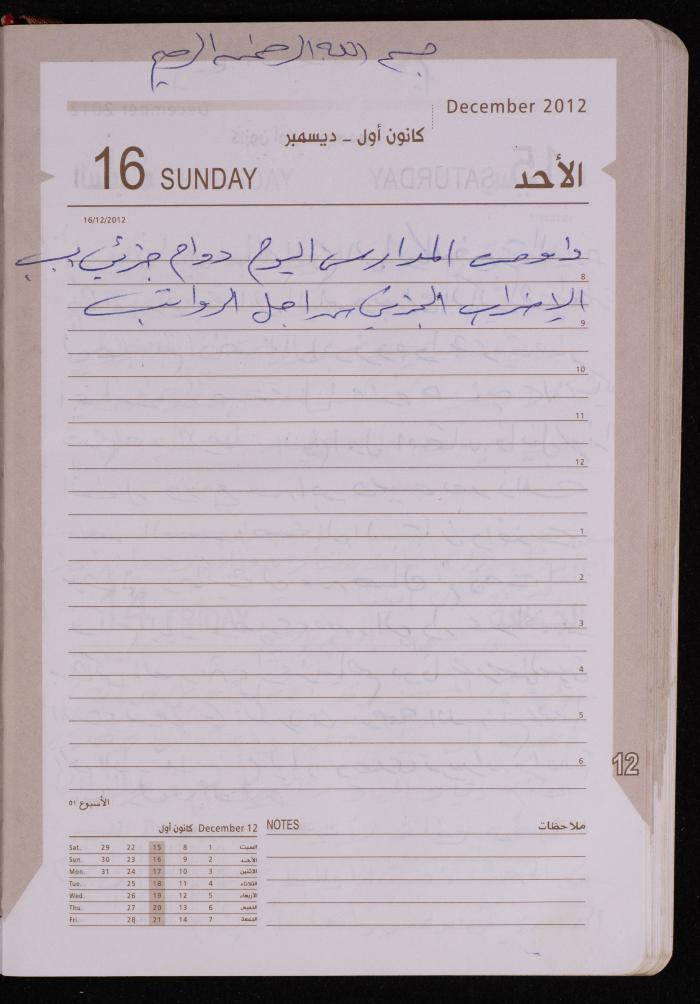 بسم الله الرحمن الرحيم
December 2012
كانون أول - ديسمبر
16 SUNDAY الأحد
16/12/2012
داومت المدارس اليوم دوام جزئي بسبب
8
الإضراب الجزئي من اجل الرواتب
9
10
11
12
1
2
3
4
5
6
12
الأسبوع ٥١
December 12 كانون أول
Sat. 29 22 15 8 1 السبت
Sun. 30 23 16 9 2 الأحد
Mon. 31 24 17 10 3 الاثنين
Tue. 25 18 11 4 الثلاثاء
Wed. 26 19 12 5 الأربعاء
Thu. 27 20 13 6 الخميس
Fri. 28 21 14 7 الجمعة
NOTES ملاحظات